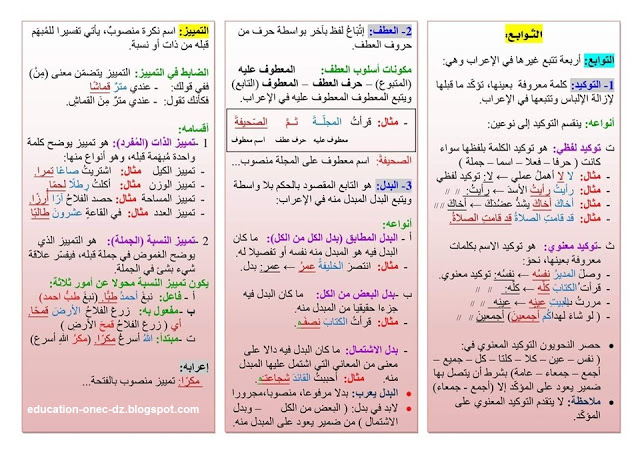 التوابع:
التوابع: أربعة تتبع غيرها في الإعراب وهي:
1- التوكيد: كلمة معروفة بعينها، تؤكّد ما قبلها
لإزالة الإلباس وتتبعها في الإعراب.
أنواعه: ينقسم التوكيد إلى نوعين:
ت توكيد لفظي: هو توكيد الكلمة بلفظها سواء
كانت ( حرفا – فعلا – اسما – جملة )
- مثال: لا لا أهملُ عملي ← لا: توكيد لفظي
- مثال: رأيتُ رأيتُ الأسدَ ← رأيتُ: // //
- مثال: أخاكَ أخاكَ يشدُّ عضدَكَ ← أخاكَ // //
- مثال: قد قامتِ الصلاةُ قد قامتِ الصلاةُ.
ث- توكيد معنوي: هو توكيد الاسم بكلمات
معروفة بعينها، نحوَ:
- وصلَ المديرُ نفسُه ← نفسُه: توكيد معنوي.
- قرأتُ الكتابَ كلَّه ← كلَّه: // //
- مررتُ بالبيتِ عينِه ← عينِه // //
- ( لو شاءَ لهداكُم أجمعينَ ) أجمعينَ // //
• حصر النحويون التوكيد المعنوي في:
( نفس – عين – كلا – كلتا – كل – جميع –
أجمع – جمعاء – عامة) بشرط أن يتصل بها
ضمير يعود على المؤكّد إلا (أجمع - جمعاء)
• ملاحظة: لا يتقدم التوكيد المعنوي على
المؤكّد.
2- العطف: إتْباعُ لفظ بآخر بواسطة حرف من
حروف العطف.
مكونات أسلوب العطف: المعطوف عليه
(المتبوع) – حرف العطف – المعطوف (التابع)
ويتبع المعطوف المعطوف عليه في الإعراب.
- مثال: قرأتُ المجلّـةَ ثـمَّ الصحيفةَ
معطوف عليه حرف عطف اسم معطوف
الصحيفة: اسم معطوف على المجلة منصوب...
3- البدل: هو التابع المقصود بالحكم بلا واسطة
ويتبع البدل المبدل منه في الإعراب.
أنواعه:
أ - البدل المطابق (بدل الكل من الكل): ما كان
البدل فيه هو المبدل منه نفسه أو تفصيلا له.
- مثال: انتصرَ الخليفةُ عمرُ ← عمر: بدل.
ب - بدل البعض من الكل: ما كان البدل فيه
جزءا حقيقيا من المبدل منه.
- مثال: قرأتُ الكتابَ نصفَه.
- بدل الاشتمال: ما كان البدل فيه دالا على
معنى من المعاني التي اشتمل عليها المبدل
منه. مثال: أحببتُ القائدَ شجاعتَه.
• البدل يعرب: بدلا مرفوعا، منصوبا،مجرورا
• لابد في بدل: ( البعض من الكل – وبدل
الاشتمال ) من ضمير يعود على المبدل منه.
التمييز: اسم نكرة منصوبٌ، يأتي تفسيرا للمُبهَم
قبله من ذات أو نسبة.
الضابط في التمييز: التمييز يتضمّن معنى (مِنْ)
ففي قولك: - عندي مترٌ قماشًا
فكأنك تقول: - عندي مترٌ مِنَ القماشِ.
أقسامه:
1 -تمييز الذات (المُفرد): هو تمييز يوضح كلمة
واحدة مُبهَمة قبله، وهو أنواع منها:
- تمييز الكيل مثال: اشتريتُ صاعًا تمرا.
- تمييز الوزن مثال: أكلتُ رطلًا لحمًا.
- تمييز المساحة مثال: حصد الفلاحُ آرًا أرزًا.
- تمييز العدد مثال: في القاعةِ عشرونَ طالبًا
2 -تمييز النسبة (الجملة): هو التمييز الذي
يوضح الغموض في جملة قبله، فيفسّر علاقة
شيء بشئ في الجملة.
يكون تمييز النسبة محولا عن أمور ثلاثة:
أ - فاعل: نبغَ أحمدُ طبًّا (نبغَ طبُّ أحمد)
ب -مفعول به: زرعَ الفلاحُ الأرضَ قمحًا.
أي ( زرعَ الفلاحُ قمحَ الأرض )
ت -مبتدأ: اللهُ أسرعُ مكرًا. (مكرُ اللهِ أسرع)
إعرابه:
مكرًا: تمييز منصوب بالفتحة...
education-onec-dz.blogspot.com